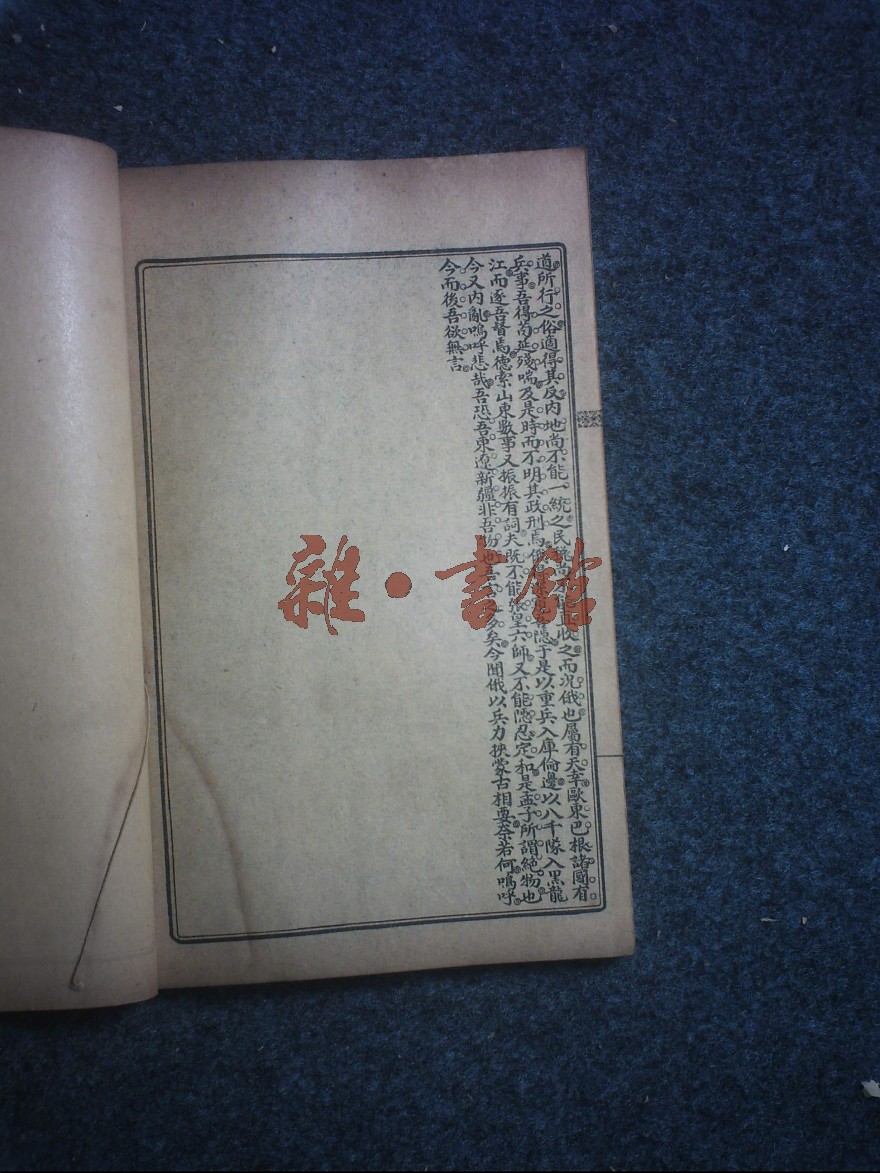 道所行之俗適得其反内地尚不能一統之民蒙尚不能直收之而况俄也屬有天幸歐東巴根諸國有
兵事吾得苟延殘喘及是時而不明其政刑焉俄隱于是以重兵入庫倫邊以八千隊入黑龍
江而逐吾督焉德索山東數事又振振有詞夫既不能張皇六師又不能隱忍定和是孟子所謂絶物也
今又内亂嗚呼悲哉吾恐吾東遼新疆非吾物也吾言多矣今聞俄以兵力挾蒙古相要奈若何嗚呼
今而後吾欲無言
雜·書館